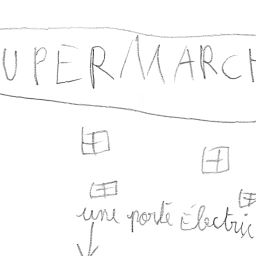 UPERMARCH
une porte Électric